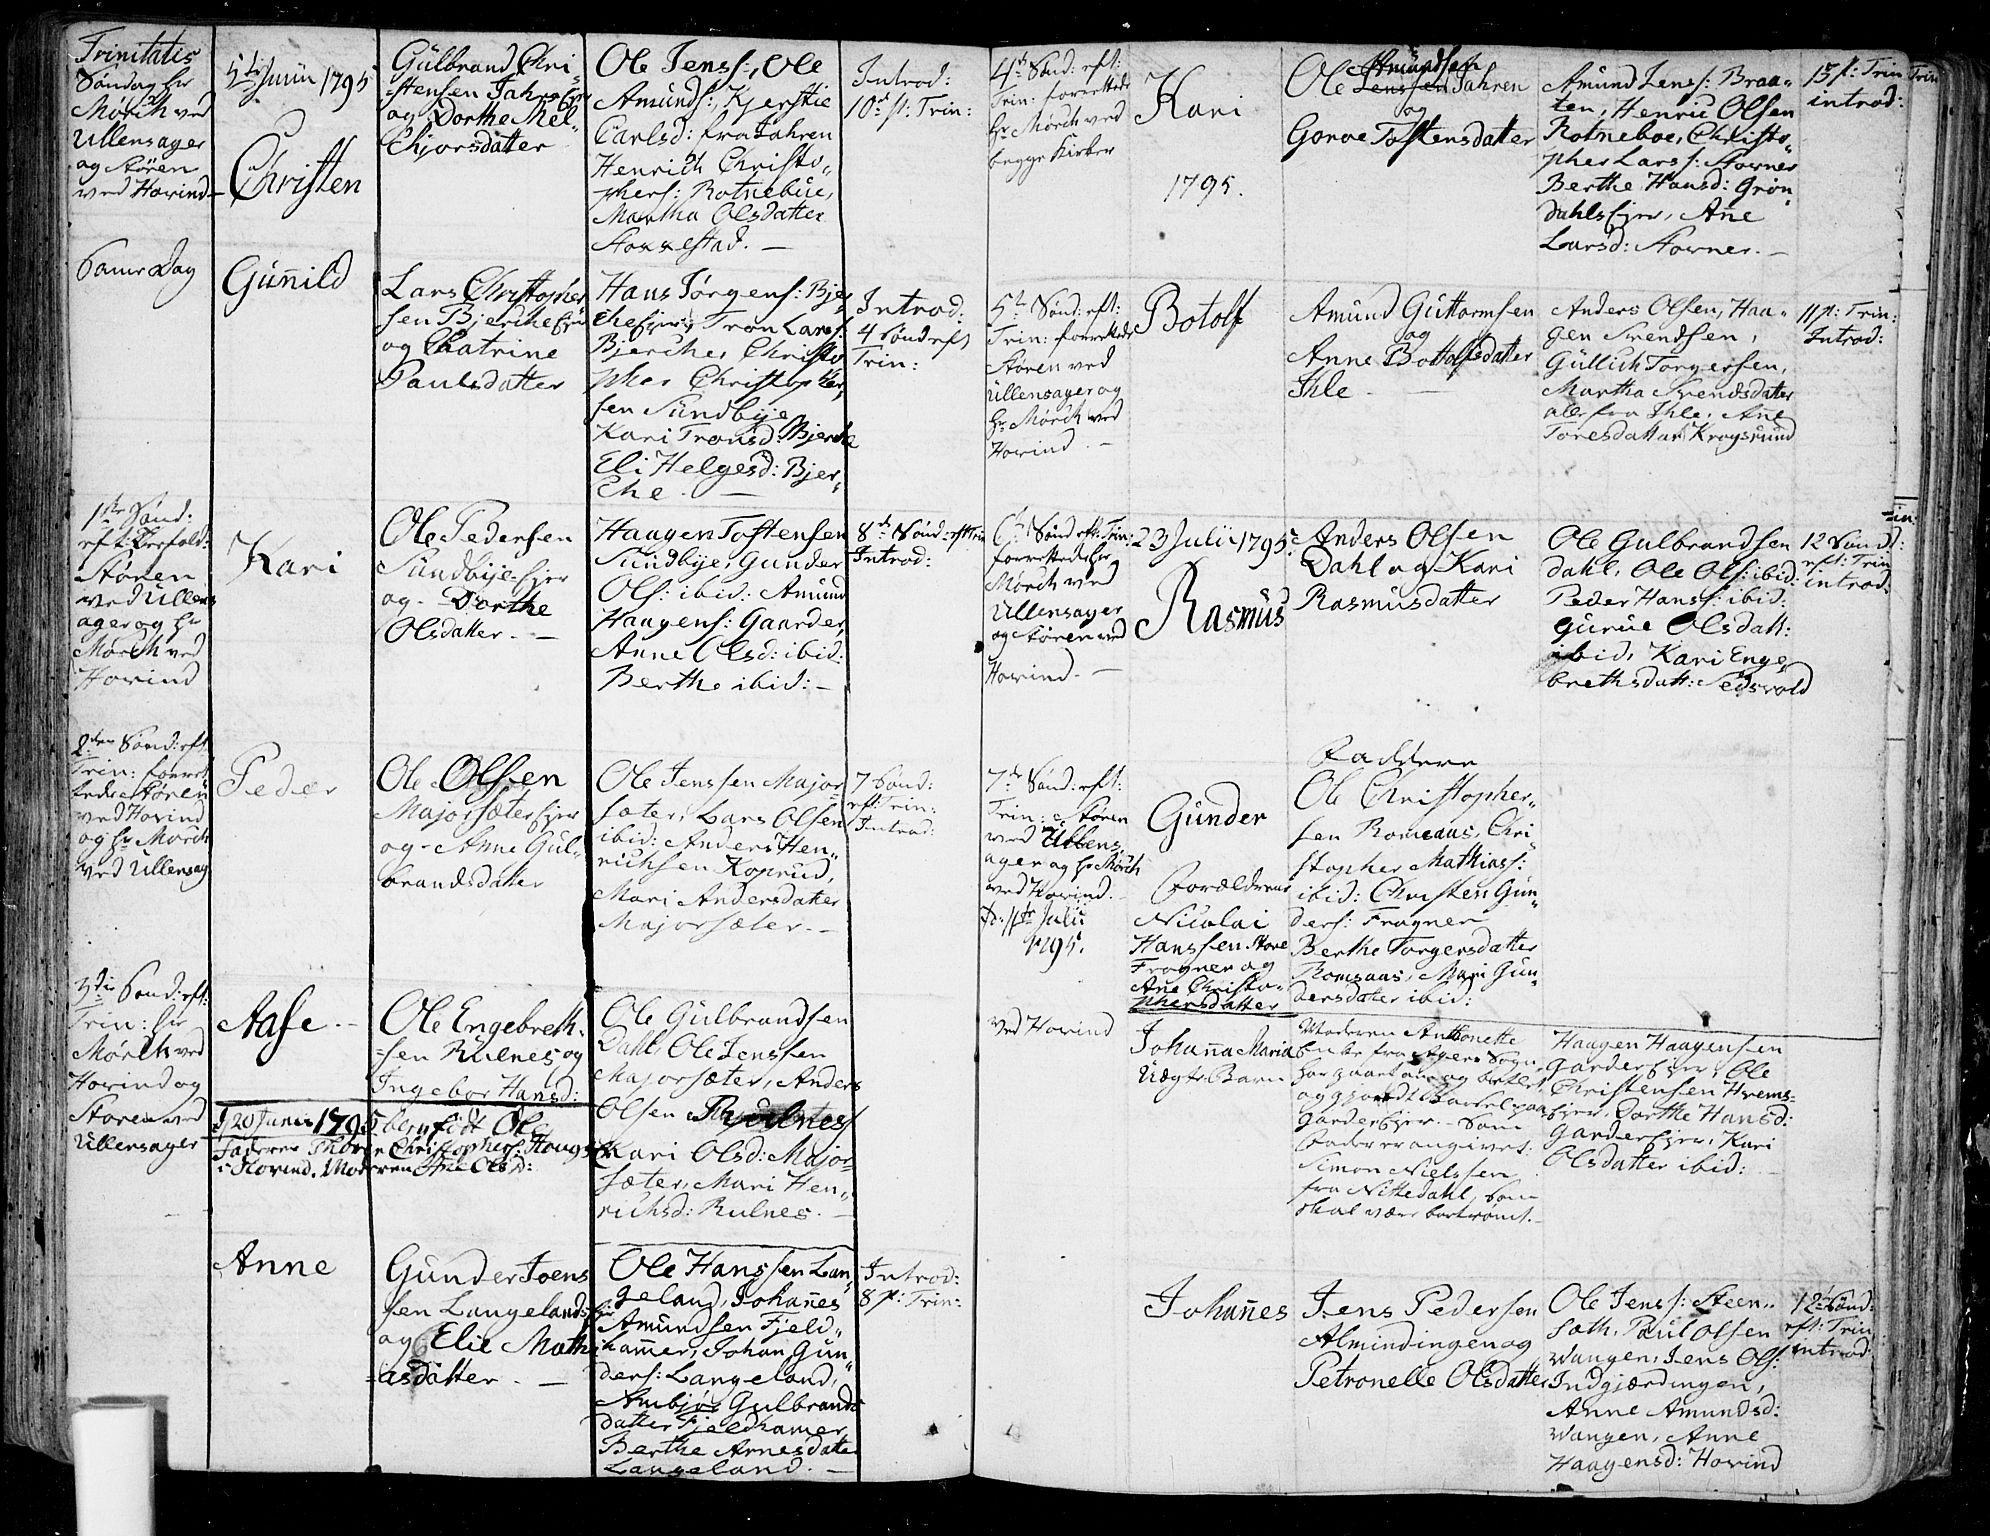 Trinitatis
Søndag Hr
Mørch ved
Ullensager
og Støren
ved Hovind
5te Junii 1795
Christen
Gülbrand Chri-
stensen Jahr Ejer
og Dorthe Mel-
chjorsdatter
Ole Jens:, Ole
Amunds:, Kjerstie
Carlsd: fra Jahren
Henrich Christo-
phers: Rotnebüe,
Martha Olsdatter
Introd:
10d p: Trin:
Same Dag
Guñild
Lars Christopher
sen Bjerche Ejer
og Chatrine
Paulsdatter
Hans Jørgens: Bjer
che Ejer, Tron Lars:
Bjerche, Christo
pher Christopher,
sen Sundbye
Kari Tronsd: Bjerche
Eli Helgesd: Bjer-
che. —
Introd:
4 Sønd eft
Trin:
1ste Sønd:
eft:
Støren
ved Ullens
ager og Hr
Mørch ved
Hovind
Kari
Ole Pedersen
Sundbye Ejer
og Dorthe
Olsdatter. —
Haagen Tostensen
Sundbye, Gunder
Ols: ibid: Amund
Haagens: Gaarder,
Anne Olsd: ibid:
Berthe ibid: —
8de Sønd eft Trin
Introd:
2den Sønd: eft:
Trin: forret
tede Støren
ved Hovind
og Hr Mørch
ved Ullensag
Peder
Ole Olsen
Majorsæter Ejer
og Anne Gul-
brandsdatter
Ole Jenssen Major
sæter, Lars Olsen
ibid: Anders Hen-
richsen Koprud,
Mari Andersdatter
Majorsæter. —
7 Sønd:
eft: Trin:
Introd:
3die Sønd: eft:
Trin: Hr
Mørch ved
Hovind og
Støren ved
Ullensager
Aase. —
Ole Engebreth-
sen Rulnes og
Ingebor Hansd:
Ole Gulbrandsen
Dahl, Ole Jenssen
Majorsæter, Anders
Olsen
Kari Olsd: Major-
sæter, Mari Hen-
richsd: Rulnes. —
d 20 Junii 1795 født Ole
Faderen Thor Christophers: Haug
i Hovind. Moderen Ane Olsd:
Anne
Gunder Joens
sen Langeland Ejer
og Elie Math
asdatter. —
Ole Hanssen Lan-
geland, Johañes
Amundsen Fjeld-
hamer, Johan Gun-
ders: Langeland,
Ambjør Gulbrands
datter Fjeldhamer
Berthe Arnesdatter
Langeland. —
Introd:
8 p: Trin:
4de Sønd: eft:
Trin: forrettede
Hr Mørch ved
begge Kirker
Kari
1795.
Amundsen
Ole Jenssen Jahren
og
Goroe Tostensdatter
Amund Jens: Braa-
ten, Henric Olsen
Rotneboe, Christo-
pher Lars: Stovner
Berthe Hansd: Grøn
dahls Ejer, Añe
Larsd: Stovner. —
13 p: Trin
introd:
5te Sønd: eft:
Trin: forrettede
Støren ved
Ullensager og
Hr Mørch ved
Hovind. —
Botolf
Amund Guttormsen
og
Anne Bottolfsdatter
Ihle. —
Anders Olsen, Haa-
gen Svendsen,
Güllich Torgersen,
Martha Svendsdatter
alle fra Ihle, Añe
Toresdatter Krogsrund
11 p: Trin:
Introd:
6te Sønd eft: Trin:
forrettede Hr
Mørch ved
Ullensager
og Støren ved
Hovind. —
23 Julii 1795.
Rasmus
Anders Olsen
Dahl og Kari
Rasmusdatter
Ole Gulbrandsen
Dahl, Ole Ols: ibid:
Peder Hans: ibid:
Gurue Olsdatt:
ibid, Kari Enge
brethsdatt: Sedsvold
12 Sønd:
eft: Trin
introd.
7de Sønd: eft:
Trin: Støren
ved Ullens,
ager og Hr Mørch
ved Hovind. —
d: 11te Julii
1795.
Gunder
Forældrene
Nicolai
Hanssen Store
Frogner og
Ane Christo-
phersdatter
Faddere
Ole Christopher-
sen Romsaas, Chri
stopher Mathias:
ibid: Christen Gun-
ders: Frogner
Berthe Torgersdatter
Romsaas, Mari Gun-
dersdatter ibid:
ved Hovind
Johaña Maria
Uægte Barn
Moderen Anthonette
fra Agers Sogn
har gaaet om og betlet,
og gjordt Barsel paa
Garder Ejer. — Som
Fader er angivet:
Simon Nielssen
fra Nittedahl, som
skal være bortrømt. —
Haagen Haagensen
Garder Ejer, Ole
Christensen Hrems-
Ejer, Dorthe Hansd:
Garder Ejer, Kari
Olsdatter ibid: —
Johañes
Jens Pedersen
Almindingen og
Petronelle Olsdatter
Ole Jens: Steen-
sath, Paul Olsen
Wangen, Jens Ols:
Indgjærdingen,
Anne Amundsd:
Wangen, Anne
Haagensd: Hovind
12te Sønd:
eft: Trin
introd: